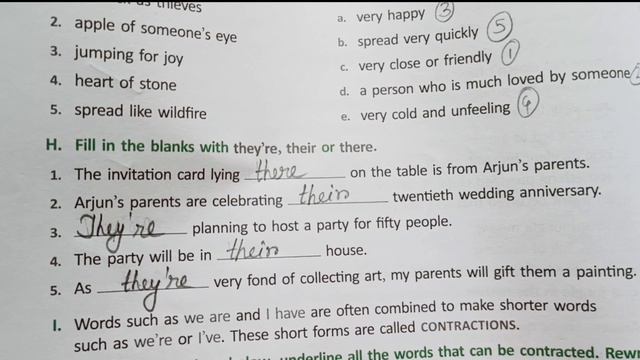 as thieves
2. apple of someone's eye
3. jumping for joy
4. heart of stone
5. spread like wildfire
a. very happy 3
b. spread very quickly 5
c. very close or friendly 1
d. a person who is much loved by someone
e. very cold and unfeeling 4
H. Fill in the blanks with they're, their or there.
1. The invitation card lying there on the table is from Arjun's parents.
2. Arjun's parents are celebrating their twentieth wedding anniversary.
3. They're planning to host a party for fifty people.
4. The party will be in their house.
5. As they're very fond of collecting art, my parents will gift them a painting.
I. Words such as we are and I have are often combined to make shorter words
such as we're or I've. These short forms are called CONTRACTIONS.
underline all the words that can be contracted. Rewr